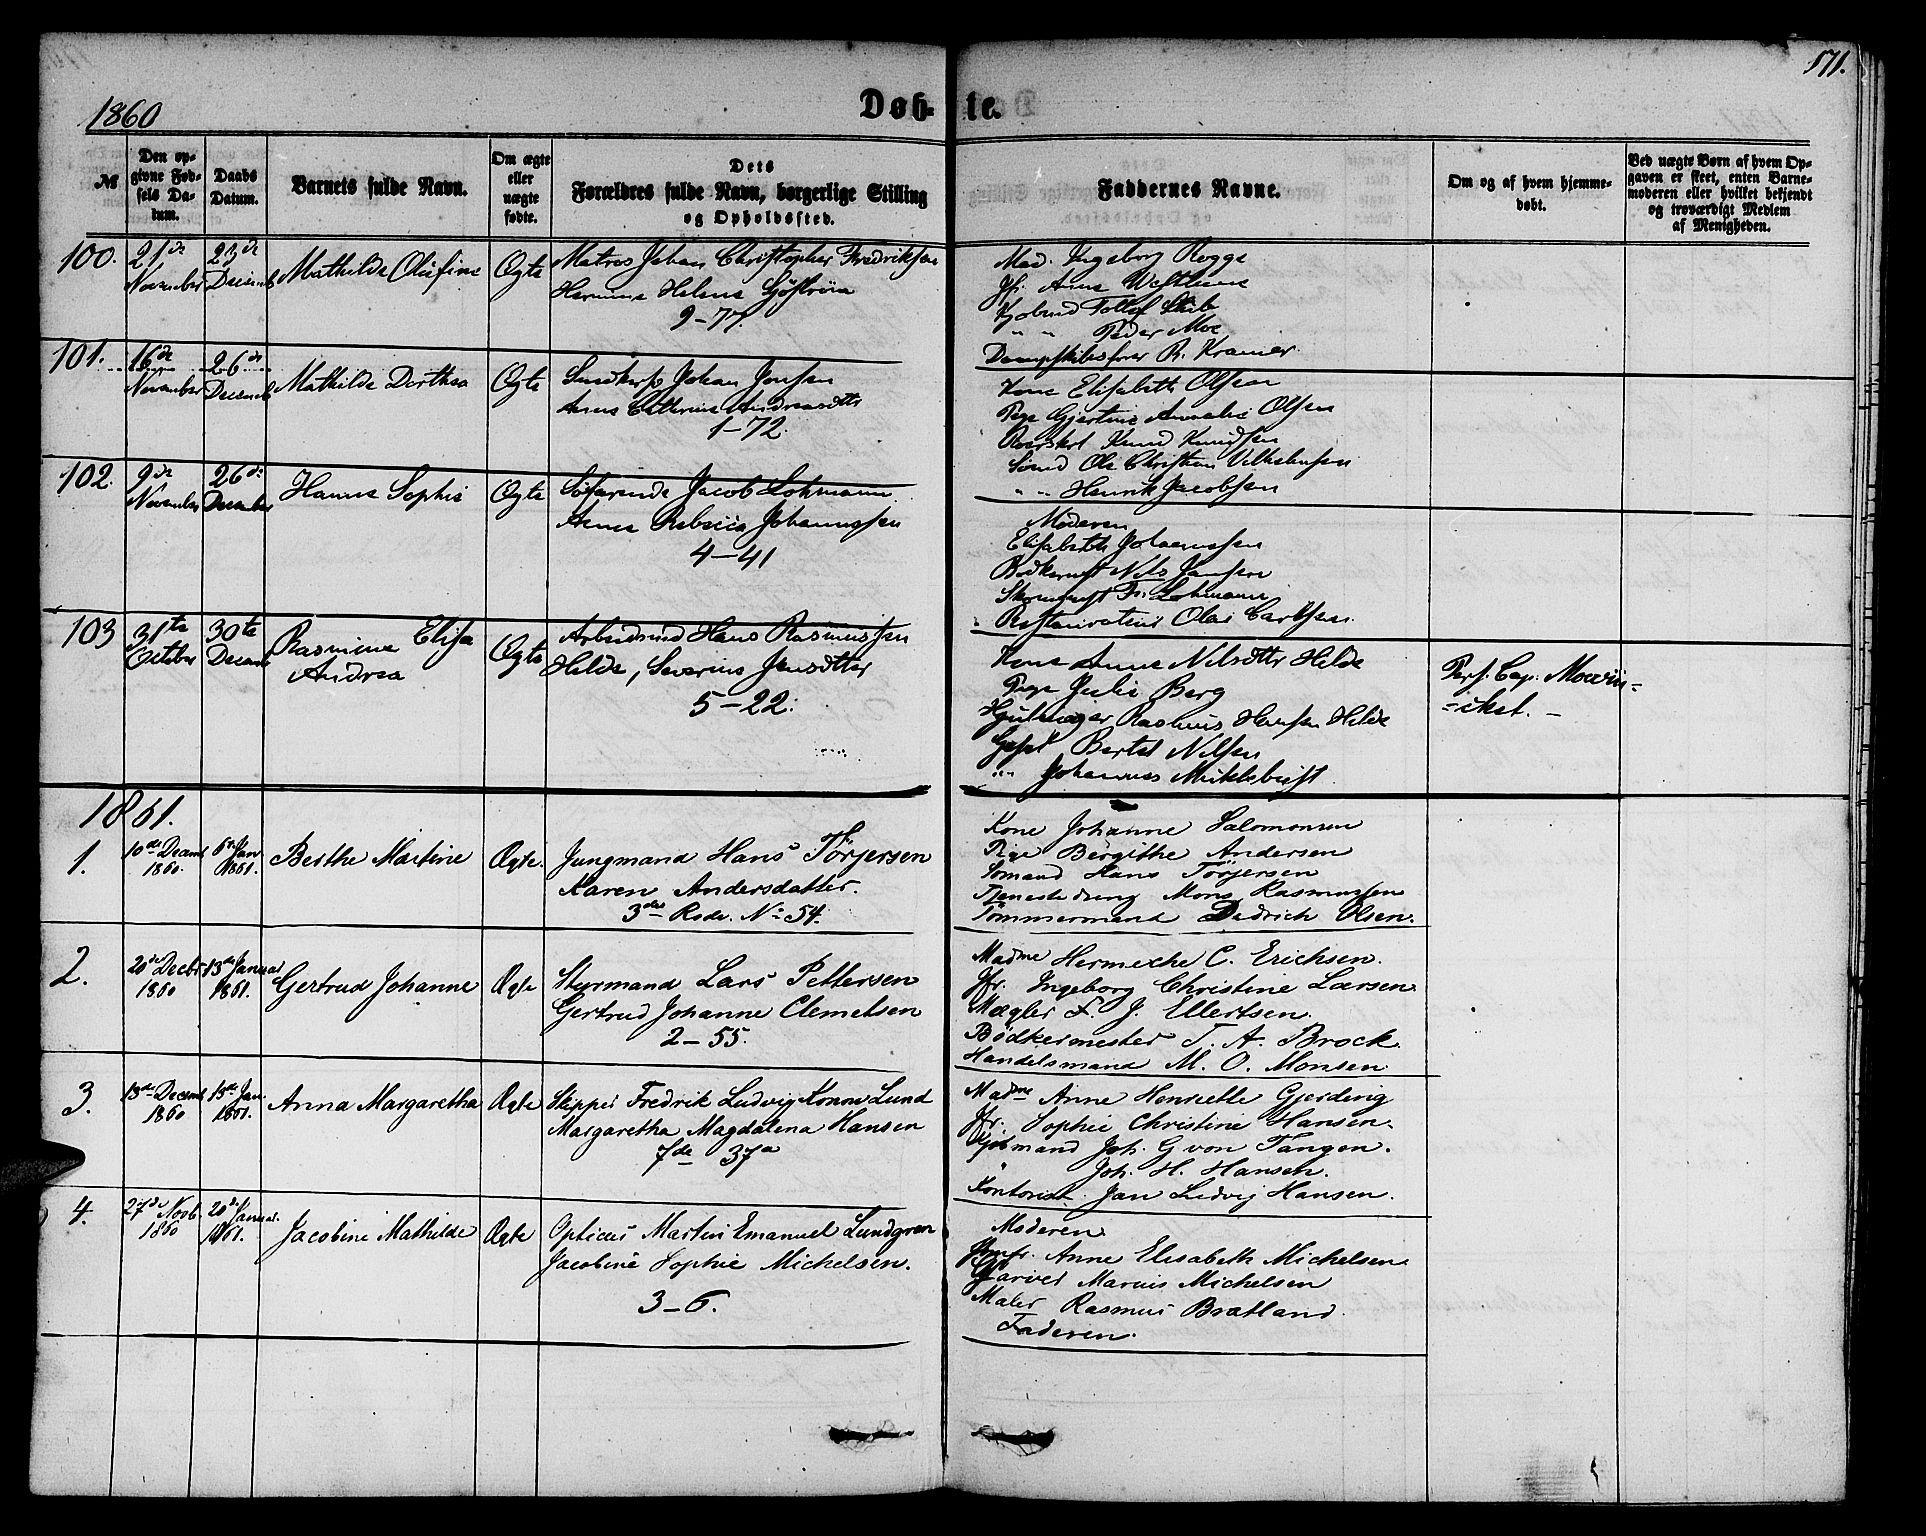 171.
1860
Døb-te.
№
Den op-
givne Fød-
sels Da-
tum.
Daabs
Datum.
Barnets fulde Navn.
Om ægte
eller
uægte
fødte.
Dets
Forældres fulde Navn, borgerlige Stilling
og Opholdssted.
Faddernes Navne.
Om og af hvem hjemme-
døbt.
Ved uægte Børn af hvem Op-
gaven er skeet, enten Barne-
moderen eller hvilket bekjendt
og troværdigt Medlem
af Menigheden.
100.
21de
November
23de
Decemb
Mathilde Olufine
Ægte
Matros Johan Christopher Fredriksen
Hermine Helene Sjøstrøm
9-77.
Mad. Ingeborg Rogge
Jfr. Anne
Kjøbmd Tollef
" " Peder Moe
Dampskibsfører R. Kramer.
101.
16de
November
26de
Decemb
Mathilde Dorthea
Ægte
Johan Jonsen
Anne Cathrine Andreasdttr
1-72.
Kone Elisabeth Olsen
Pige Gjertine Amalie Olsen
Knud Knudsen
Sømd Ole Christian Vilhelmsen
" " Henrik Jacobsen
102.
9de
November
26de
December
Hanne Sophie
Ægte
Søfarende Jacob Lohmann
Anne Rebecca Johannessen
4-41
Moderen
Elisabeth Johannessen
Bødkersv Nils Jansen
Fr. Lohmann
Restaurateur Olai Carlsen.
103
31te
October
30te
Decemb
Rasmine Elisa
Andrea
Ægte
Arbeidsmd Hans Rasmussen
Hilde, Severine Jensdtter
5-22.
Kone Anne Nilsdttr Hilde
Pige Julie Berg
Hjulmager Rasmus Hansen Hilde
Bertel Nilsen
" " Johannes Mikkelsen
Pers. Cap.
-ikst. -
1861.
1.
10de Decemb
1860.
6te Jan
1861.
Berthe Martine
Ægte.
Jungmand Hans Törjersen
Karen Andersdatter.
3die Rode. No 54.
Kone Johanne Salomonsen
Pige Bergithe Andersen
Sømand Hans Törjersen
Tjenestedreng Mons Rasmussen
Tömmermand Dedrich Olsen.
2.
20de Decbr
1860
13de Januar
1861.
Gertrud Johanne
Ægte
Styrmand Lars Pettersen
Gertrud Johanne Clemetsen
2-55.
Madme Hermeche C. Erichsen.
Jfr. Ingeborg Christine Larsen
Mægler F. J. Ellertsen.
Bödkermester T. A. Brock.
Handelsmand M. O. Monsen
3.
13de Decemb
1860
15de Jan.
1861.
Anna Margaretha
Ægte
Skipper Fredrik Ludvig Konow Lund
Margaretha Magdalena Hansen
7de 37a
Madme Anne Henriette Gjerding
Jfr. Sophie Christine Hansen.
Kjøbmand Joh. G von Tangen.
Joh. H. Hansen.
Kontorist Jan Ludvig Hansen.
4.
27de Novb.
1860
20de Januar.
1861.
Jacobine Mathilde
Ægte
Opticus Martin Emanuel Lundgren
Jacobine Sophie Michelsen.
3-6.
Moderen.
Jomfr. Anne Elisabeth Michelsen
Garver Marius Michelsen
Maler Rasmus Bratland.
Faderen.